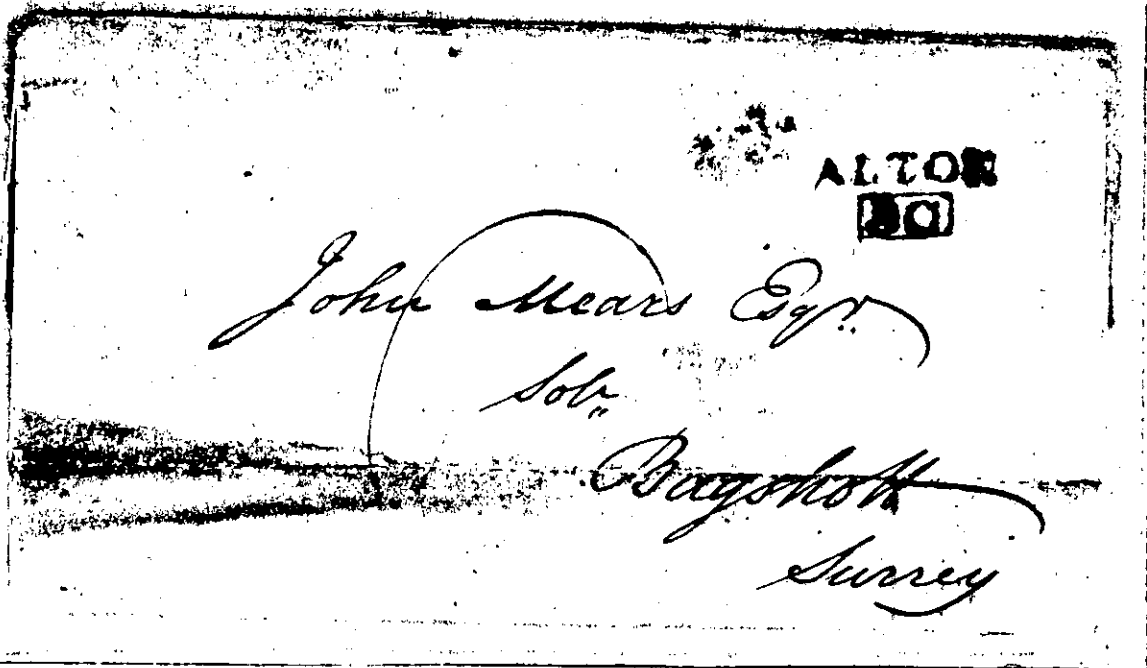 ALTON
John Mears Esqr.
Solr.
Bagshott
Surrey